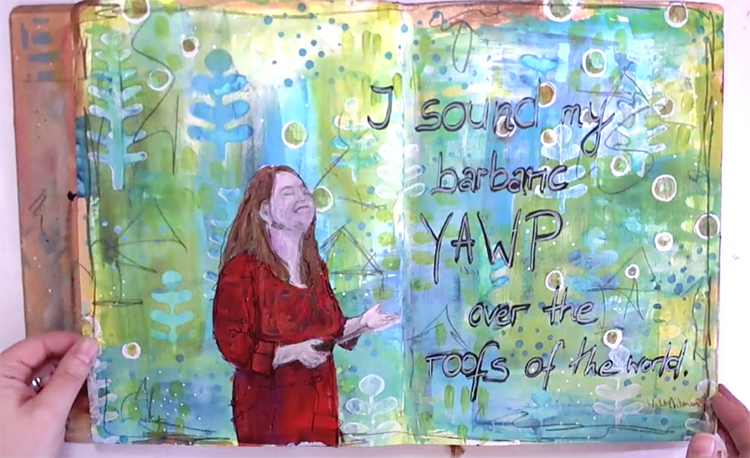 I sound my
barbaric
YAWP
over the
roofs of the world.